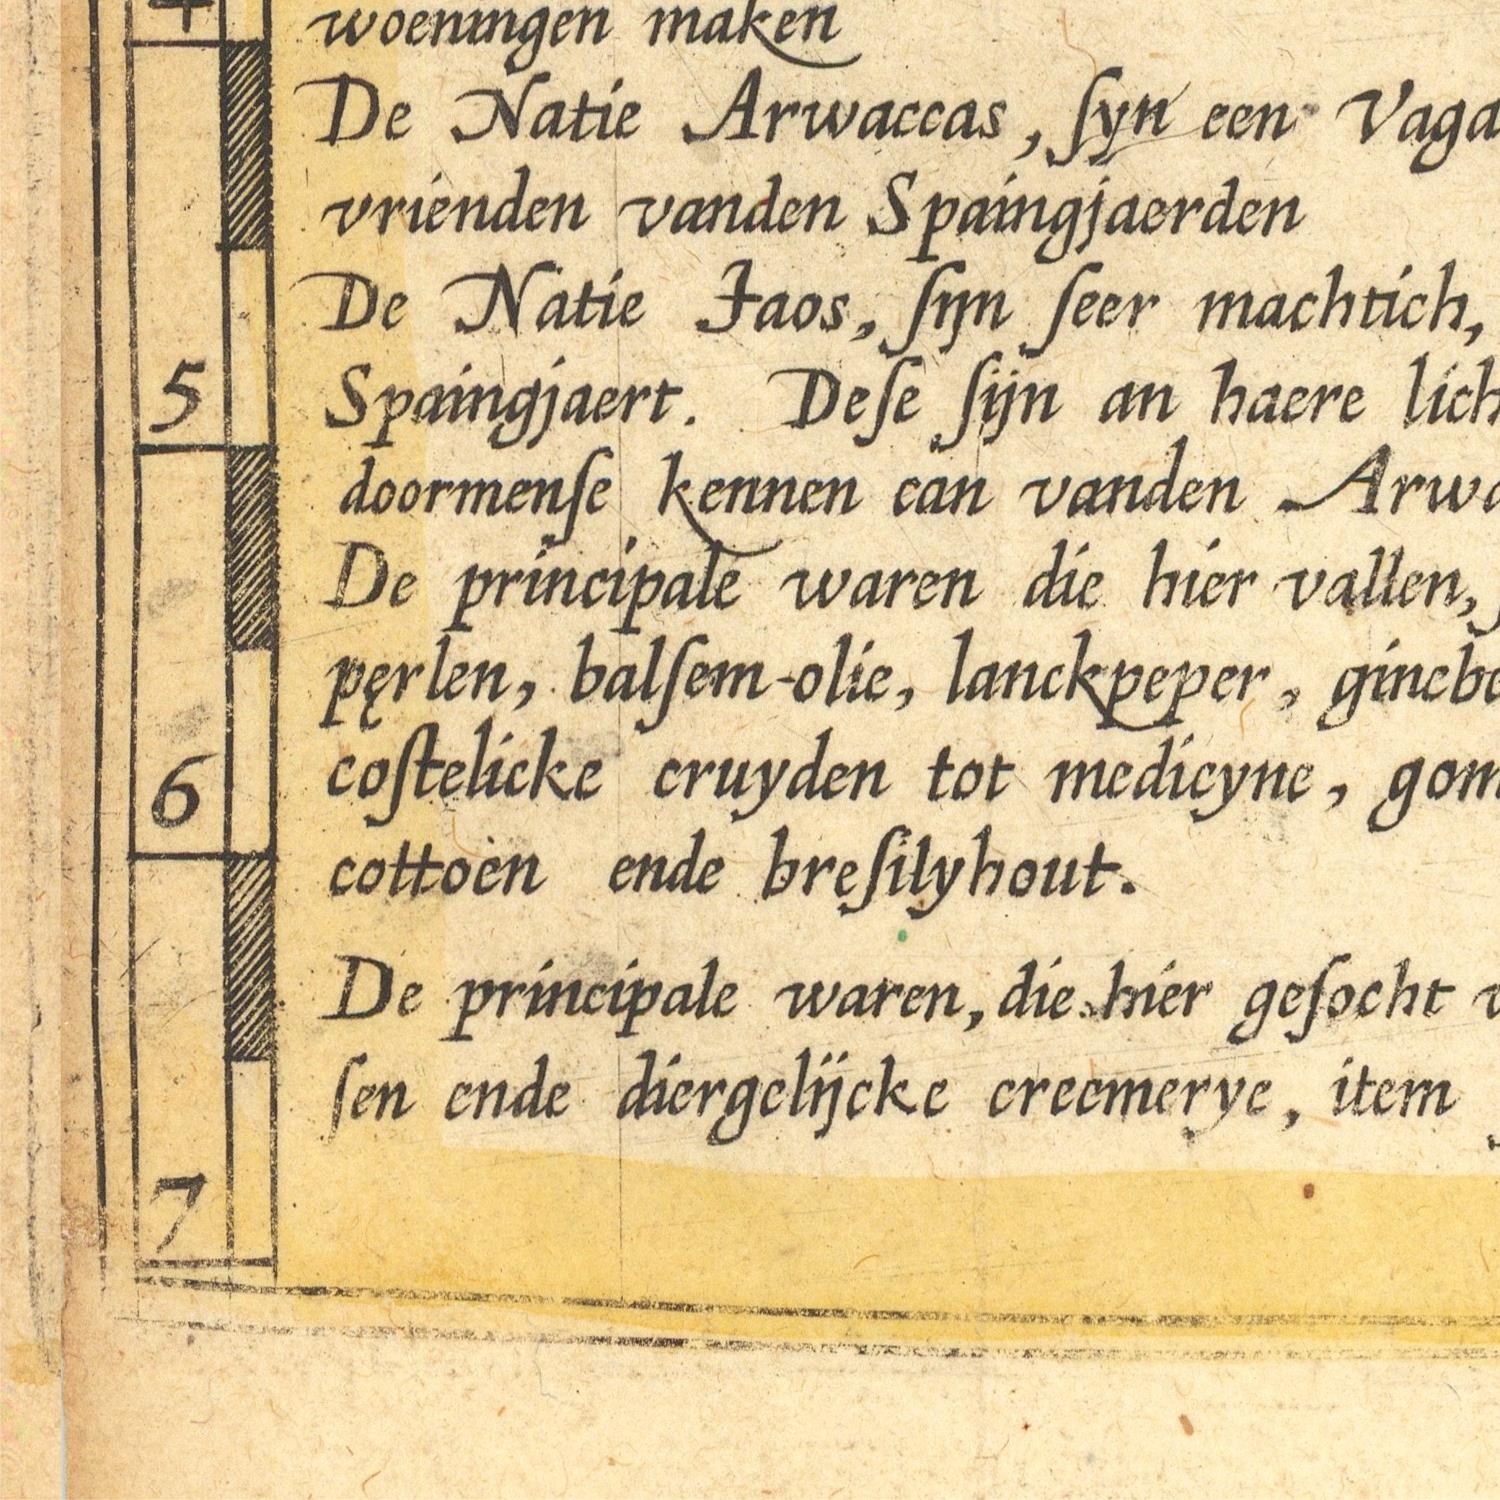 4
woeningen maken
De Natie Arwaccas, ſyn een Vaga
vrienden vanden Spaingjaerden
De Natie Jaos, ſijn ſeer machtich,
5
Spaingjaert. Deſe ſijn an haere lich
doormenſe kennen can vanden Arwa
De principale waren die hier vallen,
pęrlen, balſem-olie, lanckpeper, gincbe
6
coſtelicke cruyden tot medicyne, gom
cottoen ende breſilyhout.
De principale waren, die hier geſocht
ſen ende diergelijcke creemerye, item
7